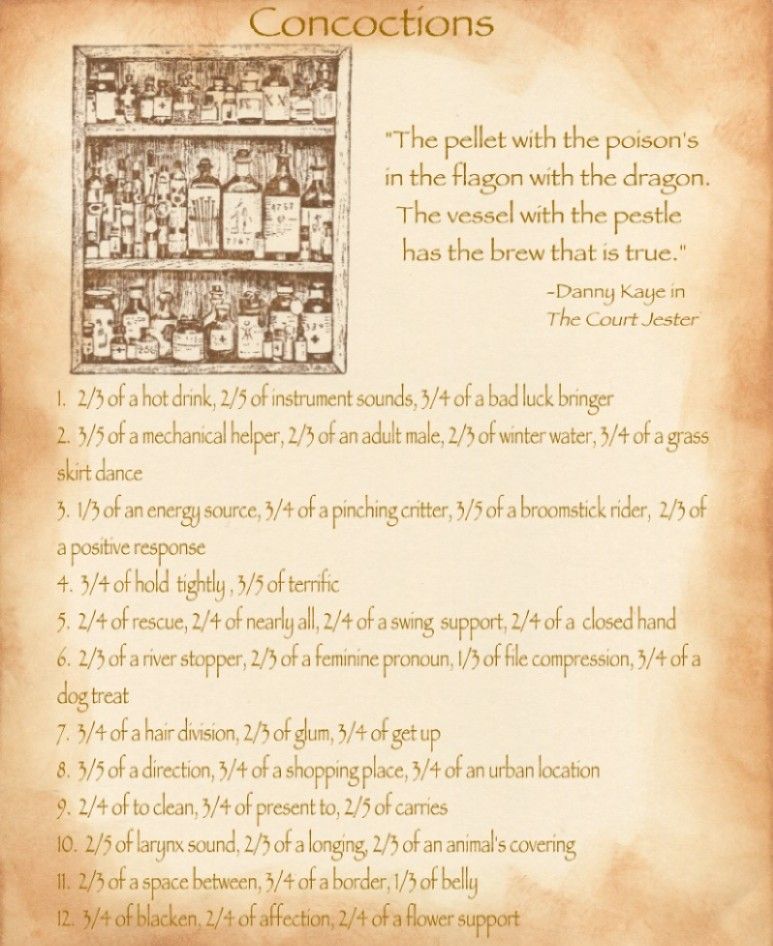 Concoctions
"The pellet with the poison's
in the flagon with the dragon.
The vessel with the pestle
has the brew that is true."
-Danny Kaye in
The Court Jester
1. 2/3 of a hot drink, 2/5 of instrument sounds, 3/4 of a bad luck bringer
2. 3/5 of a mechanical helper, 2/3 of an adult male, 2/3 of winter water, 3/4 of a grass
skirt dance
3. 1/3 of an energy source, 3/4 of a pinching critter, 3/5 of a broomstick rider, 2/3 of
a positive response
4. 3/4 of hold tightly , 3/5 of terrific
5. 2/4 of rescue, 2/4 of nearly all, 2/4 of a swing support, 2/4 of a closed hand
6. 2/3 of a river stopper, 2/3 of a feminine pronoun, 1/3 of file compression, 3/4 of a
dog treat
7. 3/4 of a hair division, 2/3 of glum, 3/4 of get up
8. 3/5 of a direction, 3/4 of a shopping place, 3/4 of an urban location
9. 2/4 of to clean, 3/4 of present to, 2/5 of carries
10. 2/5 of larynx sound, 2/3 of a longing, 2/3 of an animal's covering
11. 2/3 of a space between, 3/4 of a border, 1/3 of belly
12. 3/4 of blacken, 2/4 of affection, 2/4 of a flower support